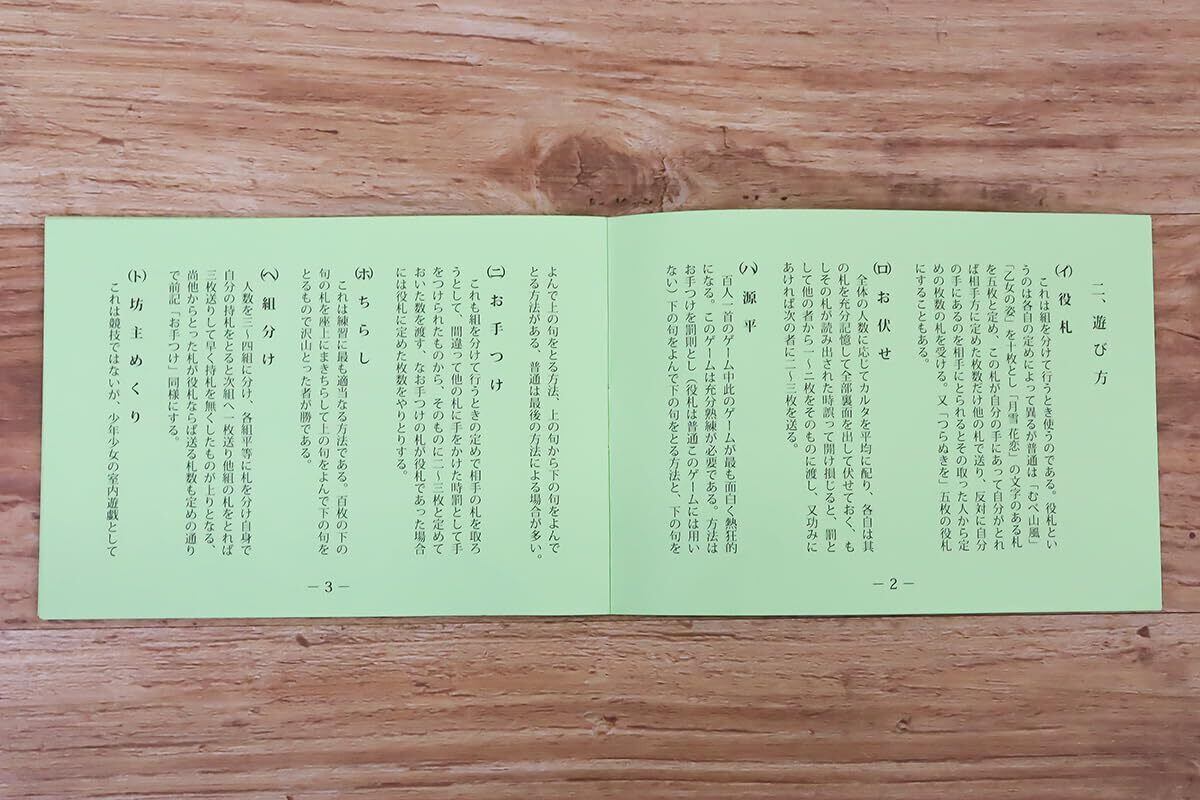 二、遊び方
㈠イ 役札
これは組を分けて行うとき使うのである。役札とい
うのは各自の定めによって異るが普通は「むべ山風」
「乙女の姿」を十枚とし「月雪 花恋」の文字のある札
を五枚と定め、この札が自分の手にあって自分がとれ
ば相手方に定めた枚数だけ他の札で送り、反対に自分
の手にあるのを相手にとられるとその取った人から定
めの枚数の札を受ける。又「つらぬきを」五枚の役札
にすることもある。
(ロ) お伏せ
全体の人数に応じてカルタを平均に配り、各自は其
の札を充分記憶して全部裏面を出して伏せておく、も
しその札が読み出された時誤って開け損じると、罰と
して他の者から一〜二枚をそのものに渡し、又功みに
あければ次の者に二〜三枚を送る。
(ハ) 源平
百人一首のゲーム中此のゲームが最も面白く熱狂的
になる。このゲームは充分熟練が必要である。方法は
お手つけを罰則とし(役札は普通このゲームには用い
ない)下の句をよんで下の句をとる方法と、下の句を
― 2 ―
よんで上の句をとる方法、上の句から下の句をよんで
とる方法がある、普通は最後の方法による場合が多い。
(ニ) お手つけ
これも組を分けて行うときの定めで相手の札を取ろ
うとして、間違って他の札に手をかけた時罰として手
をつけられたものから、そのものに二〜三枚と定めて
おいた数を渡す、なお手つけの札が役札であった場合
には役札に定めた枚数をやりとりする。
(ホ) ちらし
これは練習に最も適当なる方法である。百枚の下の
句の札を座上にまきちらして上の句をよんで下の句を
とるもので沢山とった者が勝である。
(ヘ) 組分け
人数を三〜四組に分け、各組平等に札を分け自身で
自分の持札をとると次組へ一枚送り他組の札をとれば
三枚送りして早く持札を無くしたものが上りとなる、
尚他からとった札が役札ならば送る札数も定めの通り
で前記「お手つけ」同様にする。
(ト) 坊主めくり
これは競技ではないが、少年少女の室内遊戯として
― 3 ―